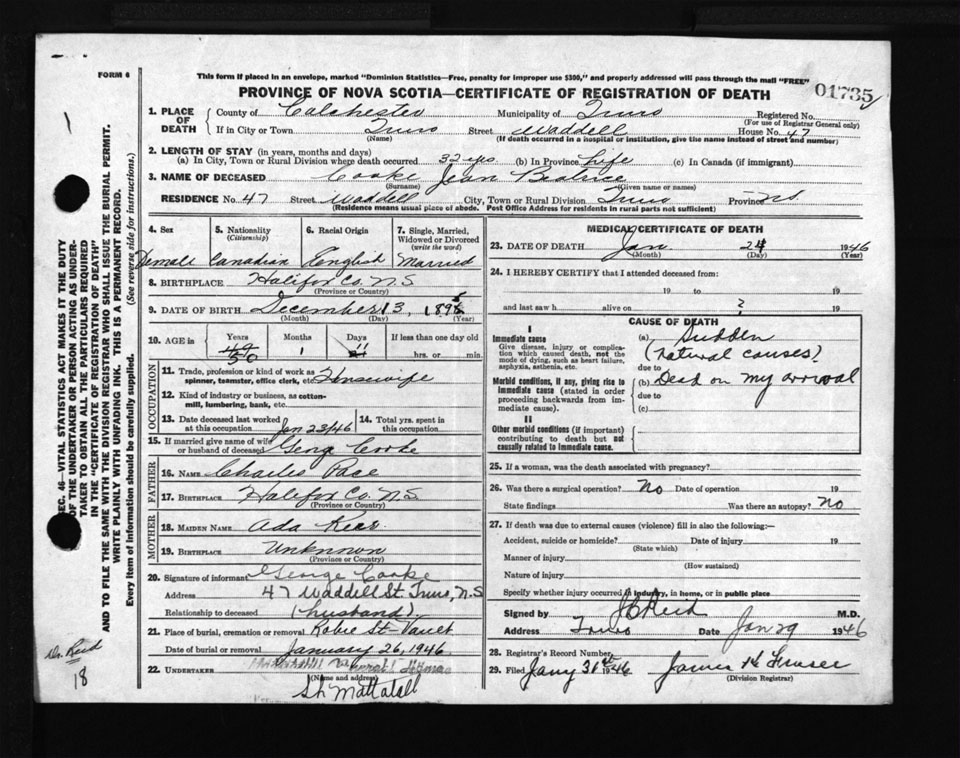 FORM 6
This form if placed in an envelope, marked "Dominion Statistics—Free, penalty for improper use $300," and properly addressed will pass through the mail "FREE"
PROVINCE OF NOVA SCOTIA—CERTIFICATE OF REGISTRATION OF DEATH
01735
1. PLACE OF DEATH
County of Colchester Municipality of Truro Registered No.
(For use of Registrar General only)
If in City or Town Truro Street Waddell House No. 47
(Name) (If death occurred in a hospital or institution, give the name instead of street and number)
2. LENGTH OF STAY (in years, months and days)
(a) In City, Town or Rural Division where death occurred 32 yrs (b) In Province Life (c) In Canada (if immigrant)
3. NAME OF DECEASED Cooke Jean Beatrice
(Surname) (Given name or names)
RESIDENCE No. 47 Street Waddell City, Town or Rural Division Truro Province N.S.
(Residence means usual place of abode. Post Office Address for residents in rural parts not sufficient)
4. Sex 5. Nationality (Citizenship) 6. Racial Origin 7. Single, Married, Widowed or Divorced (write the word)
Female Canadian English Married
8. BIRTHPLACE Halifax Co. N.S
(Province or Country)
9. DATE OF BIRTH December 13, 189
(Month) (Day) (Year)
10. AGE is Years Months Days If less than one day old
49 50 1 11 hrs. or min.
OCCUPATION
11. Trade, profession or kind of work as spinner, teamster, office clerk, etc. Housewife
12. Kind of industry or business, as cotton-mill, lumbering, bank, etc.
13. Date deceased last worked at this occupation Jan 23/46 14. Total yrs. spent in this occupation
15. If married give name of wife or husband of deceased George Cooke
FATHER
16. NAME Charles Pace
17. BIRTHPLACE Halifax Co. N.S
(Province or Country)
MOTHER
18. MAIDEN NAME Ada
19. BIRTHPLACE Unknown
(Province or Country)
20. Signature of informant George Cooke
Address 47 Waddell St. Truro, N.S
Relationship to deceased (husband)
21. Place of burial, cremation or removal Robie St-Vault
Date of burial or removal January 26, 1946
22. UNDERTAKER
(Name and address)
Mattatall
MEDICAL CERTIFICATE OF DEATH
23. DATE OF DEATH Jan. 24 1946
(Month) (Day) (Year)
24. I HEREBY CERTIFY that I attended deceased from:
19 to 19
and last saw h alive on ? 19
CAUSE OF DEATH
I
Immediate cause
Give disease, injury or complication which caused death, not the mode of dying, such as heart failure, asphyxia, asthenia, etc.
(a) Sudden
(natural causes)?
due to
Morbid conditions, if any, giving rise to immediate cause (stated in order proceeding backwards from immediate cause).
(b) Dead on my arrival
due to
(c)
II
Other morbid conditions (if important) contributing to death but not causally related to immediate cause.
25. If a woman, was the death associated with pregnancy?
26. Was there a surgical operation? No Date of operation 19
State findings Was there an autopsy? No
27. If death was due to external causes (violence) fill in also the following:—
Accident, suicide or homicide? Date of injury 19
(State which)
Manner of injury
(How sustained)
Nature of injury
Specify whether injury occurred in industry, in home, or in public place
Signed by Reid M.D.
Address Truro Date Jan 29 1946
28. Registrar's Record Number
29. Filed Jany 31st 1946 James H Fraser
(Division Registrar)
SEC. 46—VITAL STATISTICS ACT MAKES IT THE DUTY
OF THE UNDERTAKER OR PERSON ACTING AS UNDER-
TAKER TO OBTAIN ALL THE PARTICULARS REQUIRED
IN THE "CERTIFICATE OF REGISTRATION OF DEATH"
AND TO FILE THE SAME WITH THE DIVISION REGISTRAR WHO SHALL ISSUE THE BURIAL PERMIT.
WRITE PLAINLY WITH UNFADING INK. THIS IS A PERMANENT RECORD.
Every item of information should be carefully supplied. (See reverse side for instructions.)
Dr. Reid
18